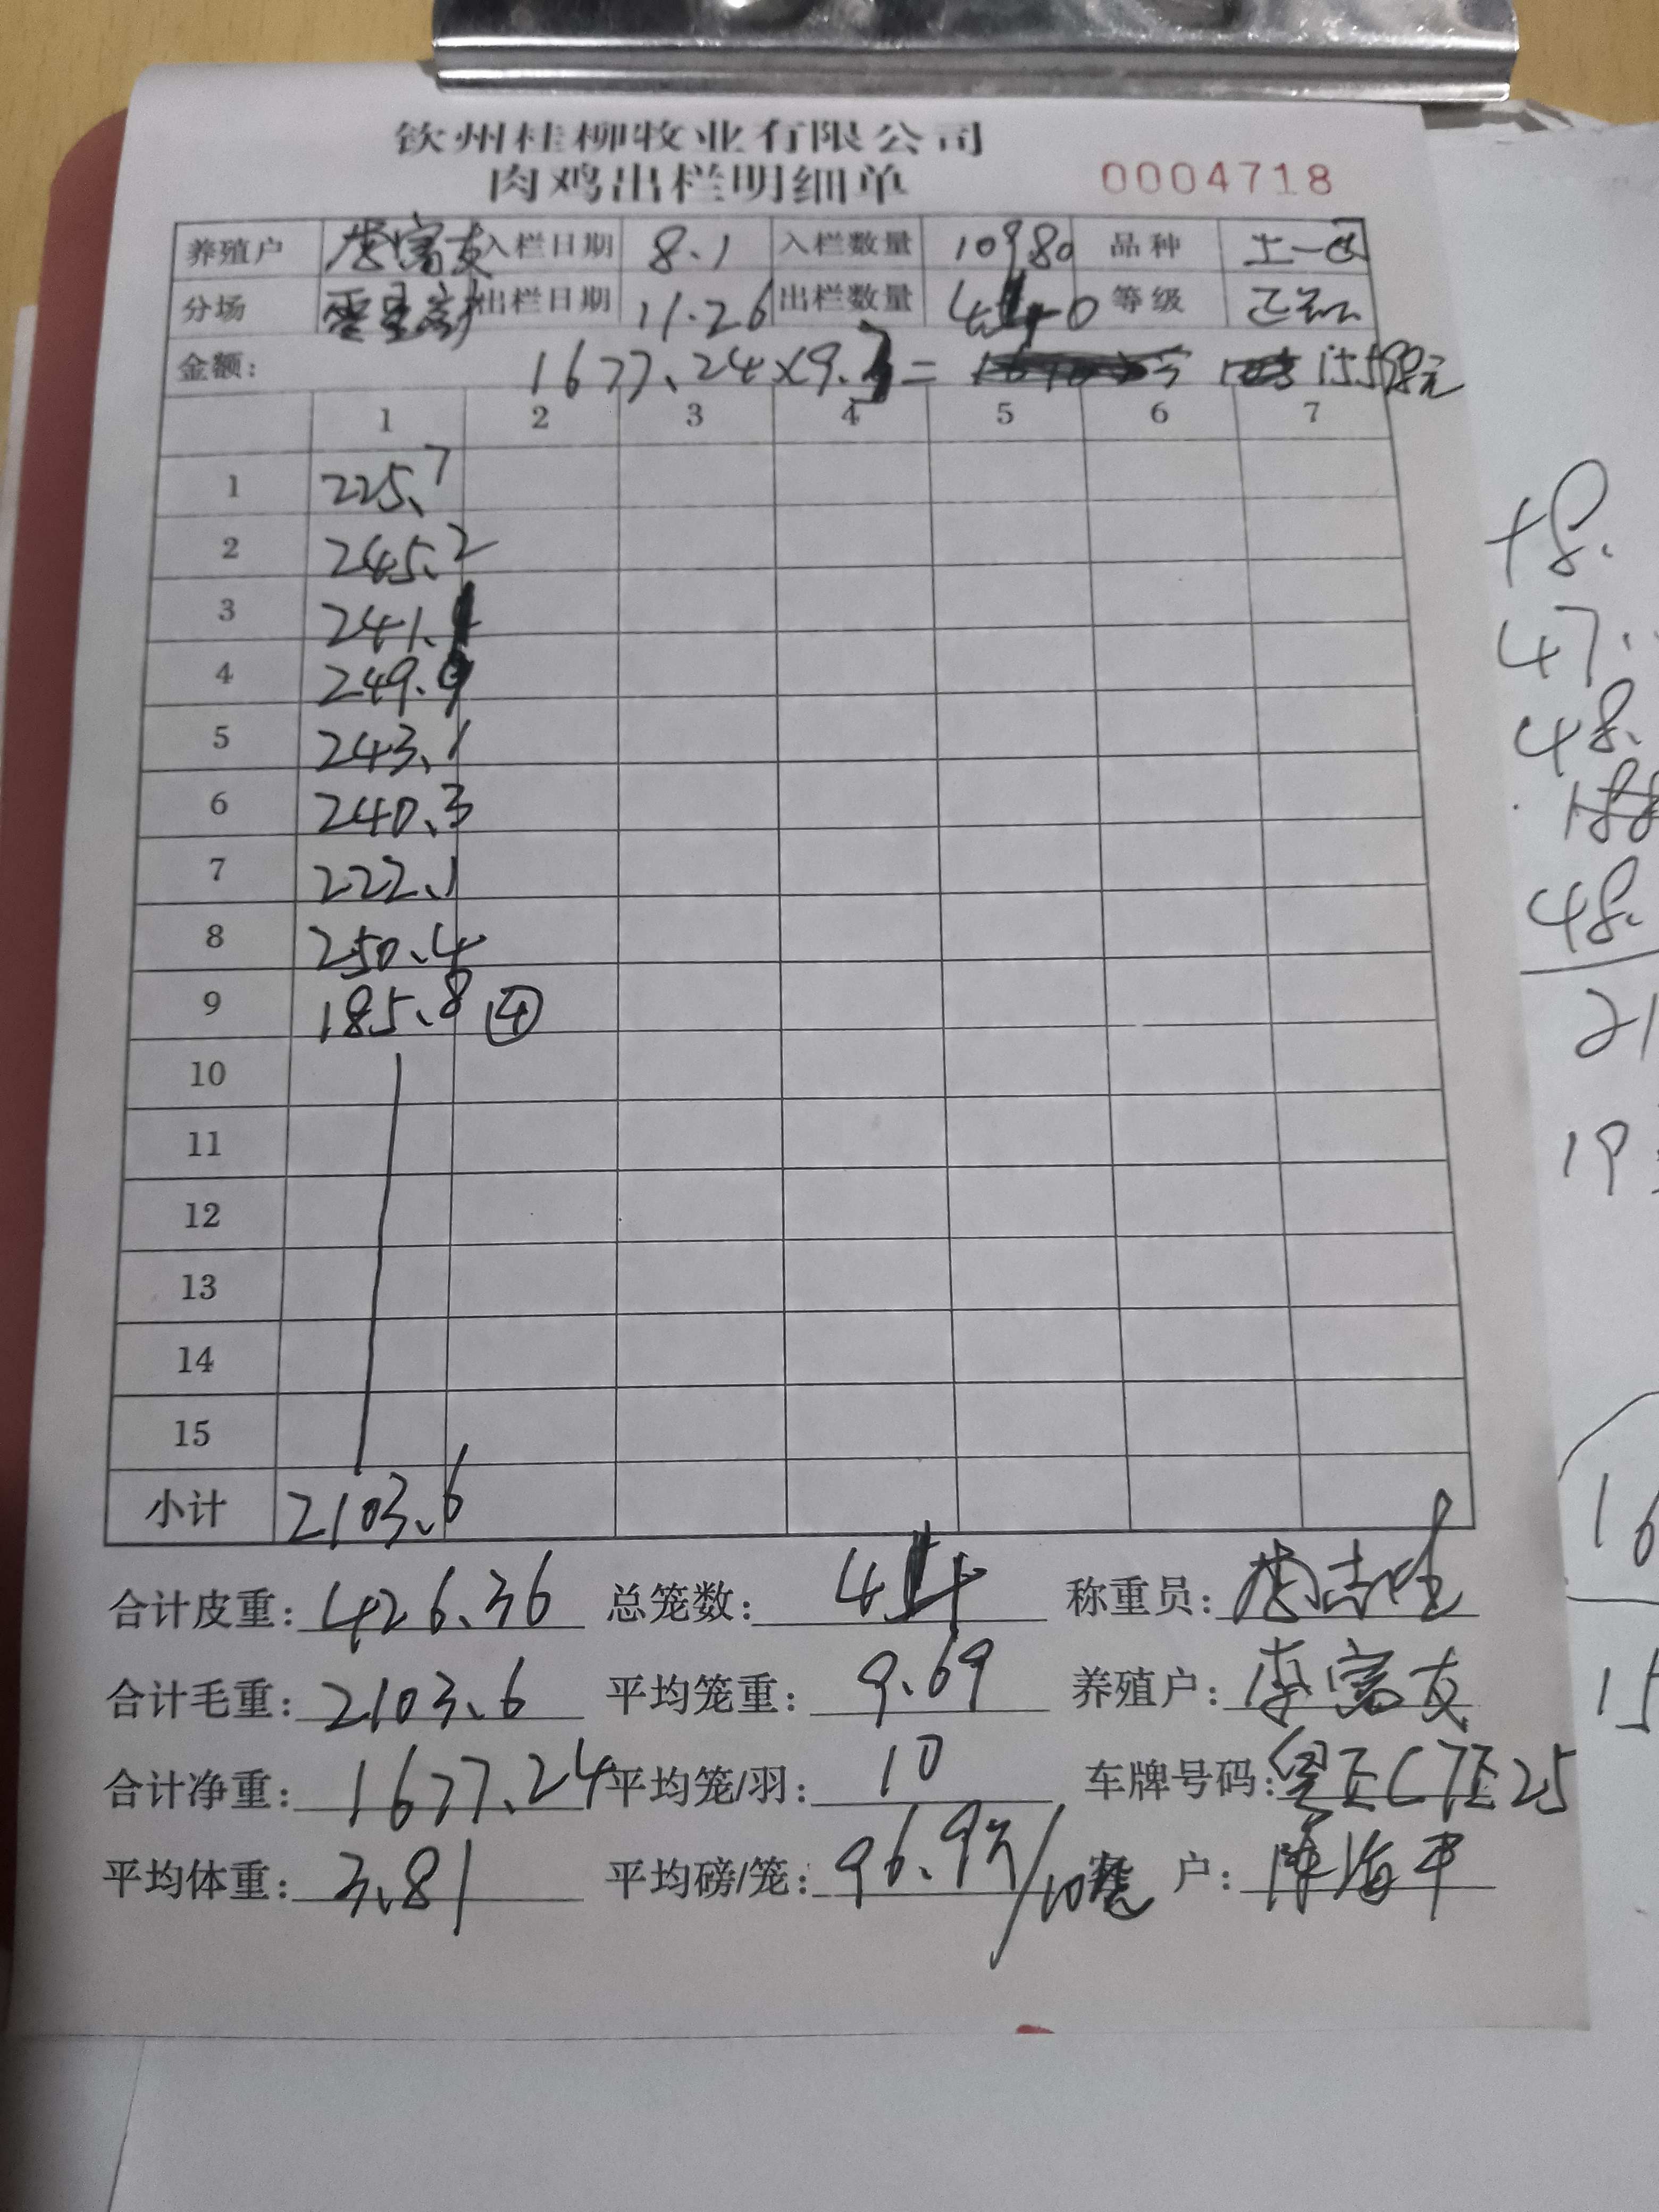 钦州桂柳牧业有限公司
肉鸡出栏明细单 0004718
养殖户 李富友 入栏日期 8.1 入栏数量 10980 品种 土一
分场 出栏日期 11.26 出栏数量 440 等级 正品
金额: 1677.24×9.3= 15598元
1 2 3 4 5 6 7
1 225.7
2 245.2
3 241.1
4 249.9
5 243.1
6 240.3
7 222.1
8 250.4
9 185.8 ④
10
11
12
13
14
15
小计 2103.6
合计皮重: 426.36 总笼数: 44 称重员:
合计毛重: 2103.6 平均笼重: 9.69 养殖户: 李富友
合计净重: 1677.24 平均笼/羽: 10 车牌号码: C7E25
平均体重: 3.81 平均磅/笼: 96.9斤/10笼 客户: 陈海平
48.
47.
48.
188
48.
21
19
16
15